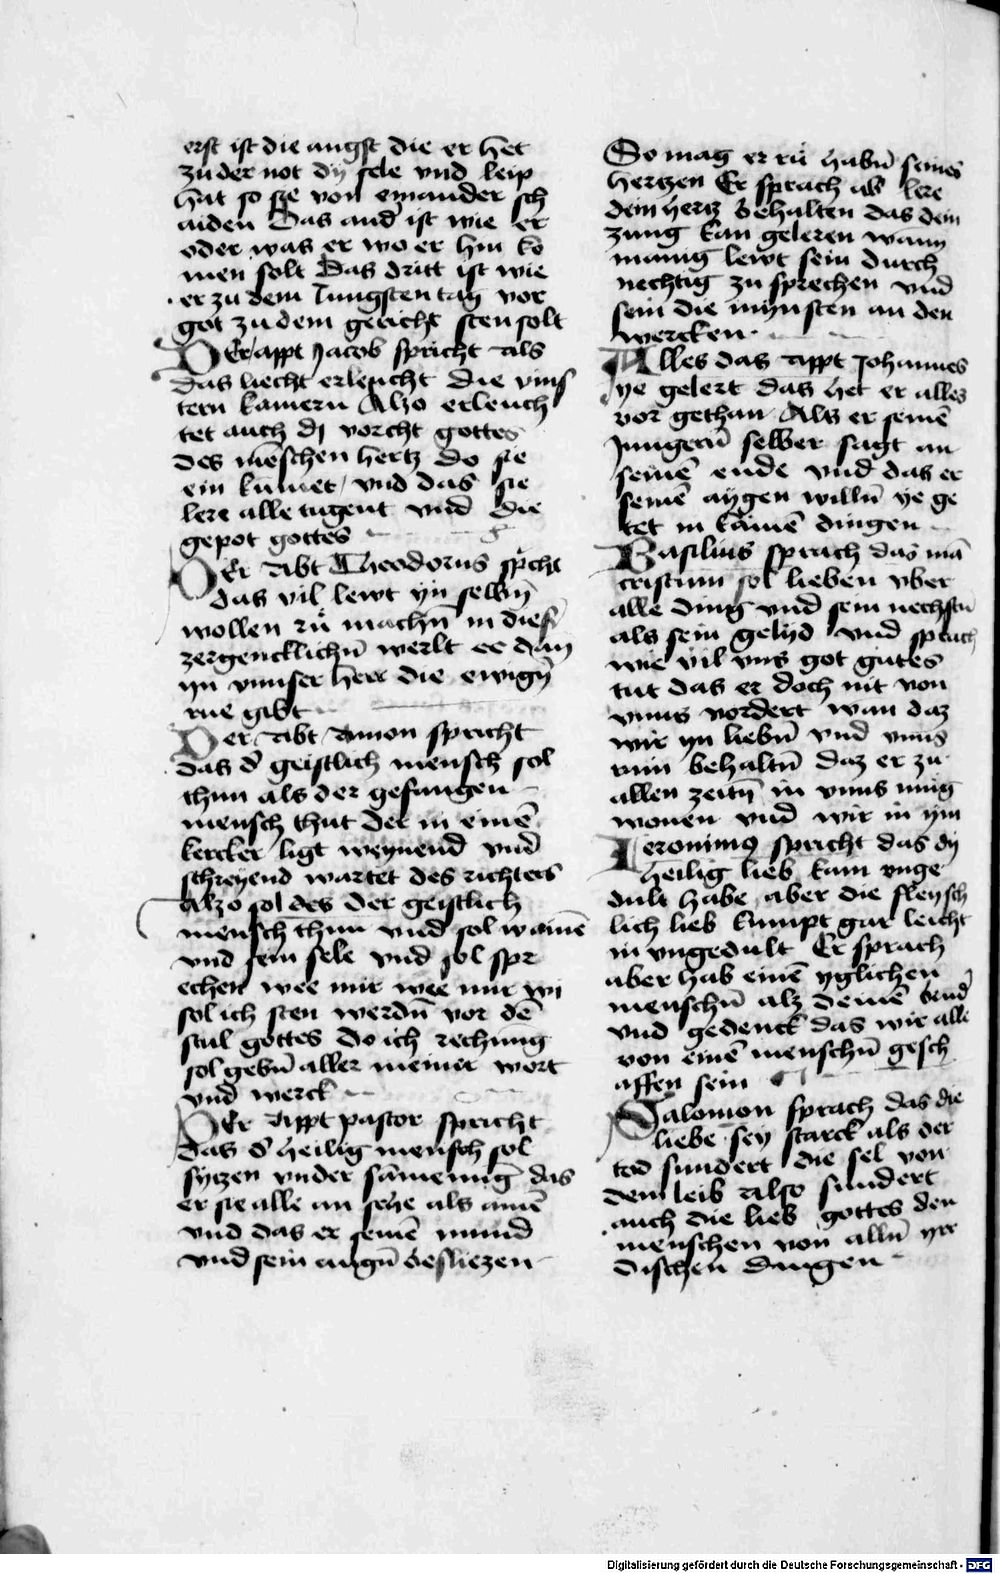 erst ist die angst die er het
zu der not dy sele vnd leip
hat so sie von einander sch
aiden Das and̄ ist wie er
oder was er wo er hin ko
men solt Das dritt ist wie
er zu dem Jungsten tag vor
got zu dem gericht sten solt
Der appt Jacob spricht Als
das liecht erleucht die vins
tern kamern Also erleuch
tet auch dy vorcht gottes
des menschen hertz do sie
ein kumet / vnd das sie
lere alle tugent vnd die
gepot gottes
Der Abt Theodorus spͥcht
das vil lewt yn selbn̄
wollen ru̇ machn̄ in dieser
zergencklichn̄ werlt ee dan̄
yn vnnser herr die ewign̄
rue gibt
Der Abt Amon spricht
das d̄ geistlich mensch sol
thun als der gefangen
mensch thut der in einē
kercker ligt weynend vnd
schreyend wartet des richters
Alzo sol des der geistlich
mensch thun vnd sol wainē
vnd sein sele vnd sol spr
echen wee mir wee mir wi
sol ich sten werdn̄ vor dē
stul gottes do ich rechnung
sol gebn̄ aller meiner wort
vnd werck
Der Appt pastor spricht
das d̄ heilig mensch sol
sytzen vnder sāmenūg das
er sie alle an sehe als ainē
vnd das er seinē mund
vnd sein augn̄ besliezen
So mag er ru̇ habn̄ seines
hertzen Er sprach ab̄ lere
dein hertz behalten das dein
zung kan geleren wann
manig lewt sein durch
nechtig zu sprechen vnd
sein die mynsten an den
wercken
Alles das Appt Johannes
ye gelert das het er alles
vor gethan Als er seinē
Jungern̄ selber sagt an
seinē ende vnd das er
seinē aygen willn̄ ye ge
tet in kainē dingen
Basilius sprach das mā
cristum sol lieben vber
alle ding vnd sein nechstn̄
als sein gelyd vnd sprach
wie vil vns got gutes
tut das er doch nit von
vnns vordert wan daz
wir yn liebn̄ vnd vnns
rain behaltn̄ daz er zu
allen zeitn̄ in vnns mug
wonen vnd wir in ym
Jeronimꝰ spricht das dy
heilig lieb kain vnge
dult habe aber die fleysch
lich lieb kumpt gar leicht
in vngedult Er sprach
aber hab einē yglichen
menschn̄ alz deinē brud̄
vnd gedenck das wir alle
von einē menschn̄ gesch
affen sein
Salomon sprach das die
liebe sey starck als der
tod sundert die sel von
dem leib also sundert
auch die lieb gottes den
menschen von alln̄ yrr
dischen dingen
Digitalisierung gefördert durch die Deutsche Forschungsgemeinschaft - DFG